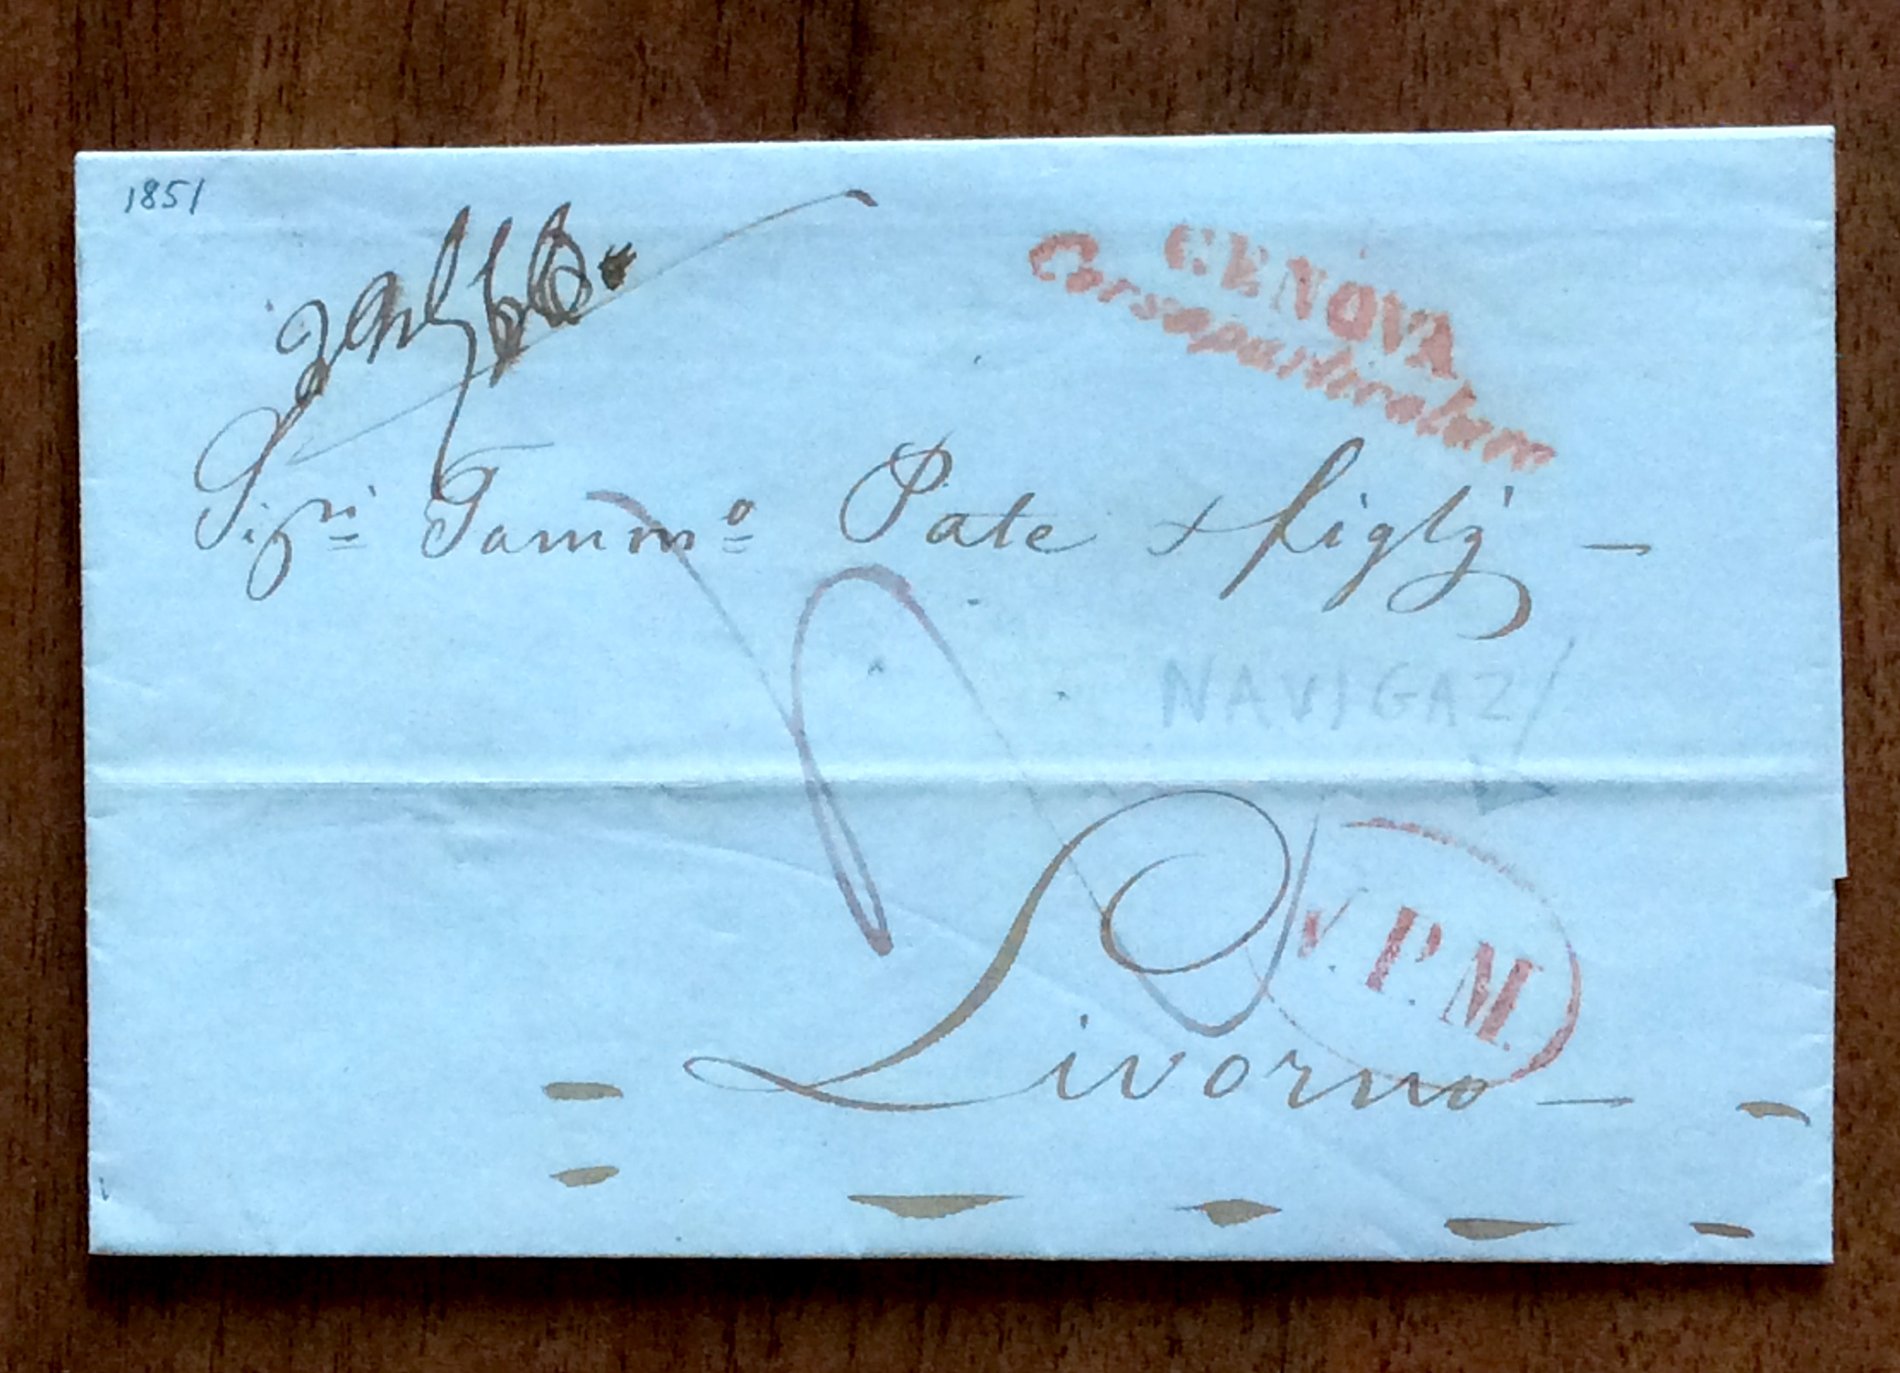 1851
GENOVA
Corsa particolare
Sig.ri Tomm.o Pate & figlj —
NAVIGAZ
V. P. M.
Livorno —